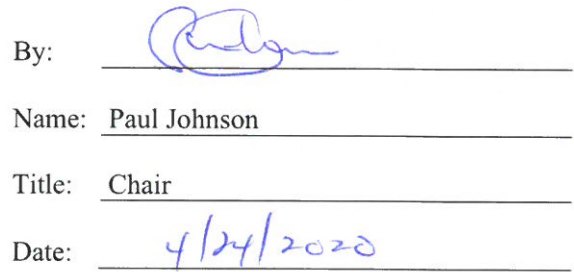 By:
Name: Paul Johnson
Title: Chair
Date: 4/24/2020